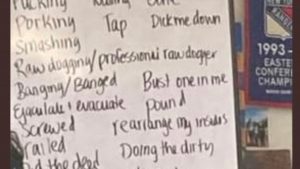 Porking Tap Dick me down
Smashing
Raw dogging/professional raw dogger
Banging/Banged Bust one in me
Ejaculate & evacuate Pound
Screwed rearrange my insides
railed Doing the dirty
the deed
1993-
EASTE
CONFERE
CHAMPI